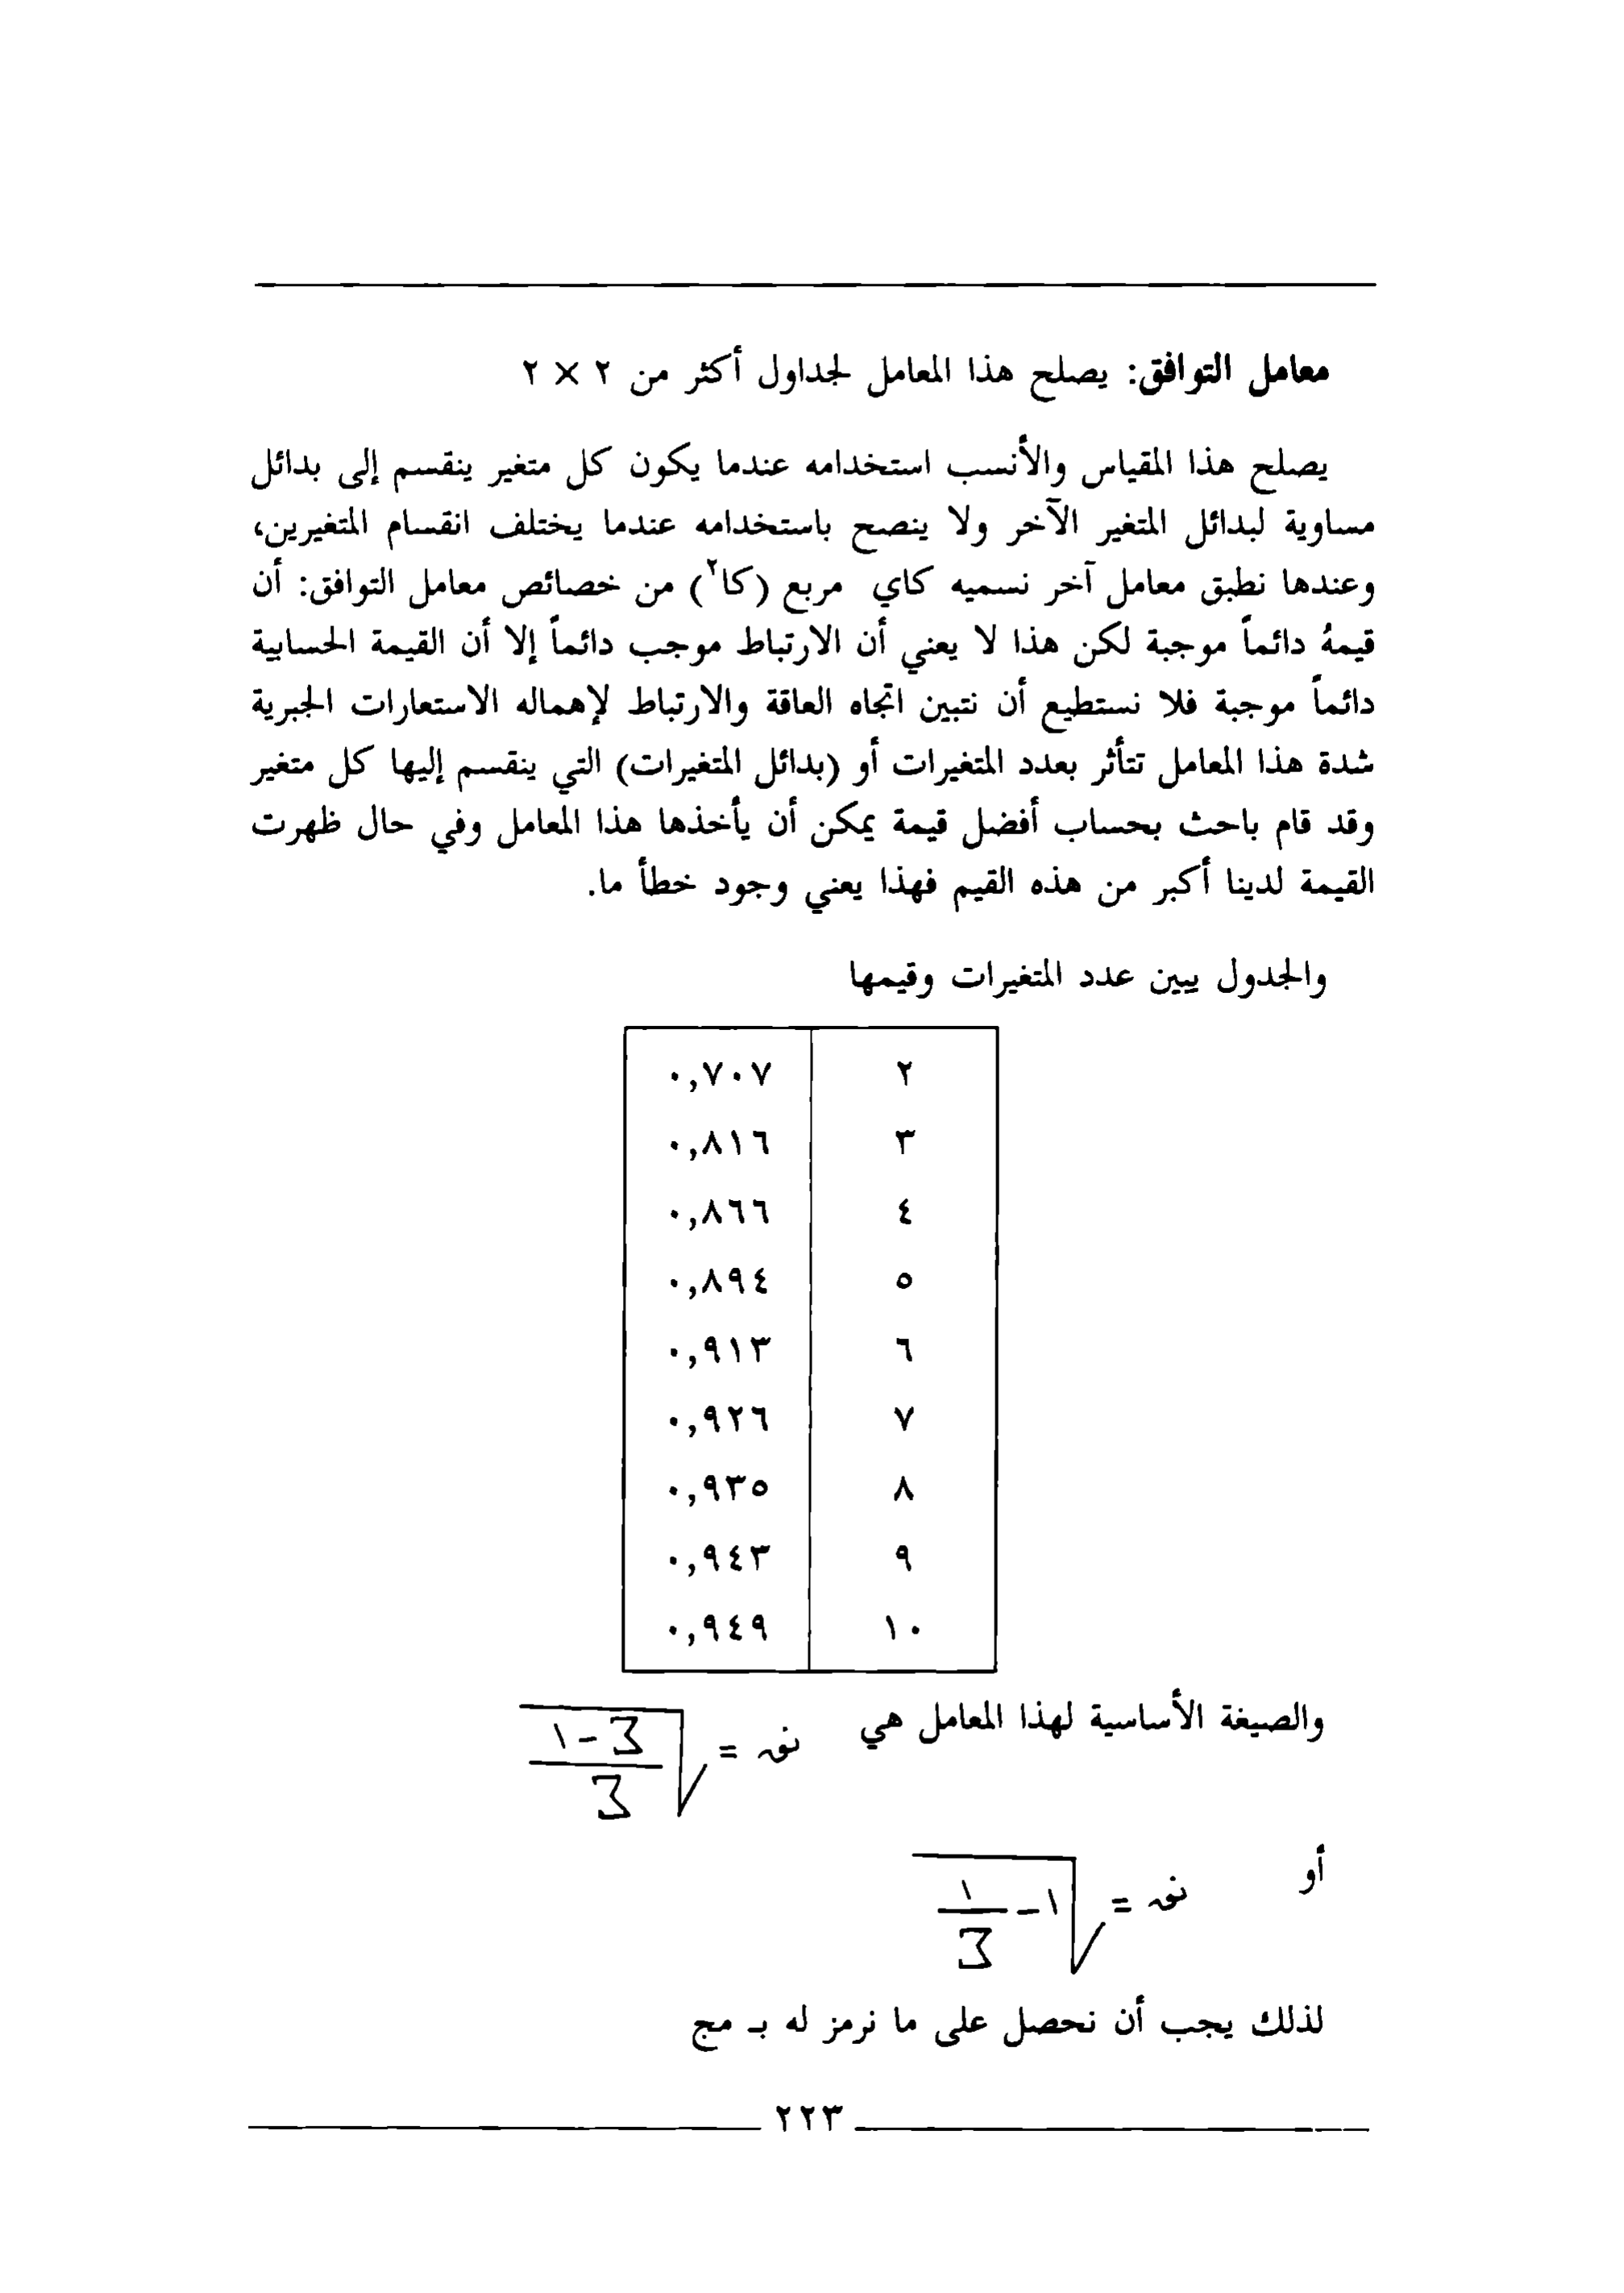 معامل التوافق: يصلح هذا المعامل لجداول أكثر من ٢ × ٢
يصلح هذا المقياس والأنسب استخدامه عندما يكون كل متغير ينقسم إلى بدائل
مساوية لبدائل المتغير الآخر ولا ينصح باستخدامه عندما يختلف انقسام المتغيرين،
وعندها نطبق معامل آخر نسميه كاي مربع (كا٢) من خصائص معامل التوافق: أن
قيمهُ دائماً موجبة لكن هذا لا يعني أن الارتباط موجب دائماً إلا أن القيمة الحسابية
دائماً موجبة فلا نستطيع أن نتبين اتجاه العاقة والارتباط لإهماله الاستعارات الجبرية
شدة هذا المعامل تتأثر بعدد المتغيرات أو (بدائل المتغيرات) التي ينقسم إليها كل متغير
وقد قام باحث بحساب أفضل قيمة يمكن أن يأخذها هذا المعامل وفي حال ظهرت
القيمة لدينا أكبر من هذه القيم فهذا يعني وجود خطأ ما.
والجدول يبين عدد المتغيرات وقيمها
٢ ٠,٧٠٧
٣ ٠,٨١٦
٤ ٠,٨٦٦
٥ ٠,٨٩٤
٦ ٠,٩١٣
٧ ٠,٩٢٦
٨ ٠,٩٣٥
٩ ٠,٩٤٣
١٠ ٠,٩٤٩
والصيغة الأساسية لهذا المعامل هي نق = √((٣-١)/٣)
أو نق = √(١-١/٣)
لذلك يجب أن نحصل على ما نرمز له بـ مج
٢٢٣